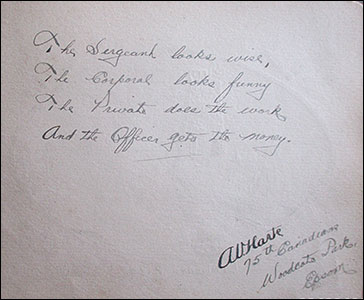 The Sergeant looks wise,
The Corporal looks funny
The Private does the work
And the Officer gets the money.
75th Canadians
Woodcote Park,
Epsom